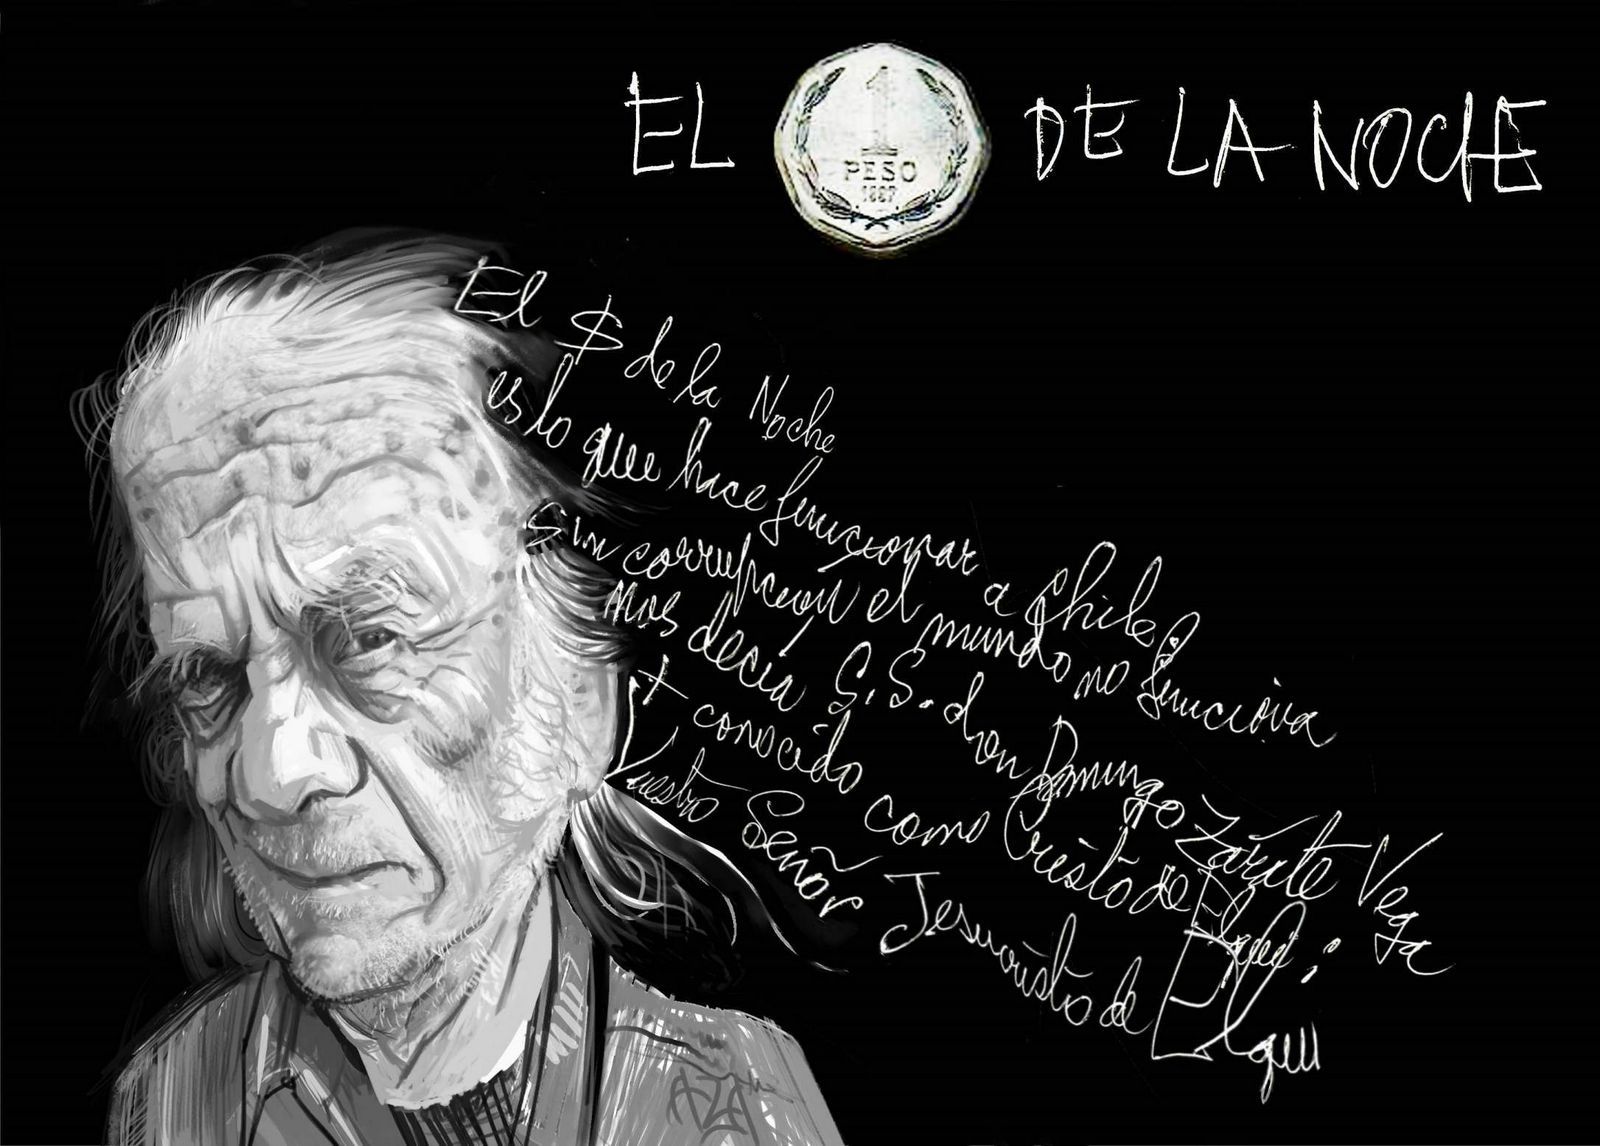 EL
1
PESO
1987
DE LA NOCHE
El $ de la Noche
es lo que hace funcionar a Chile!
Sin corrupción el mundo no funciona
nos decía S.S. don Domingo Zárate Vega
+ conocido como Cristo de Elqui:
Vuestro Señor Jesucristo de Elqui
AZA